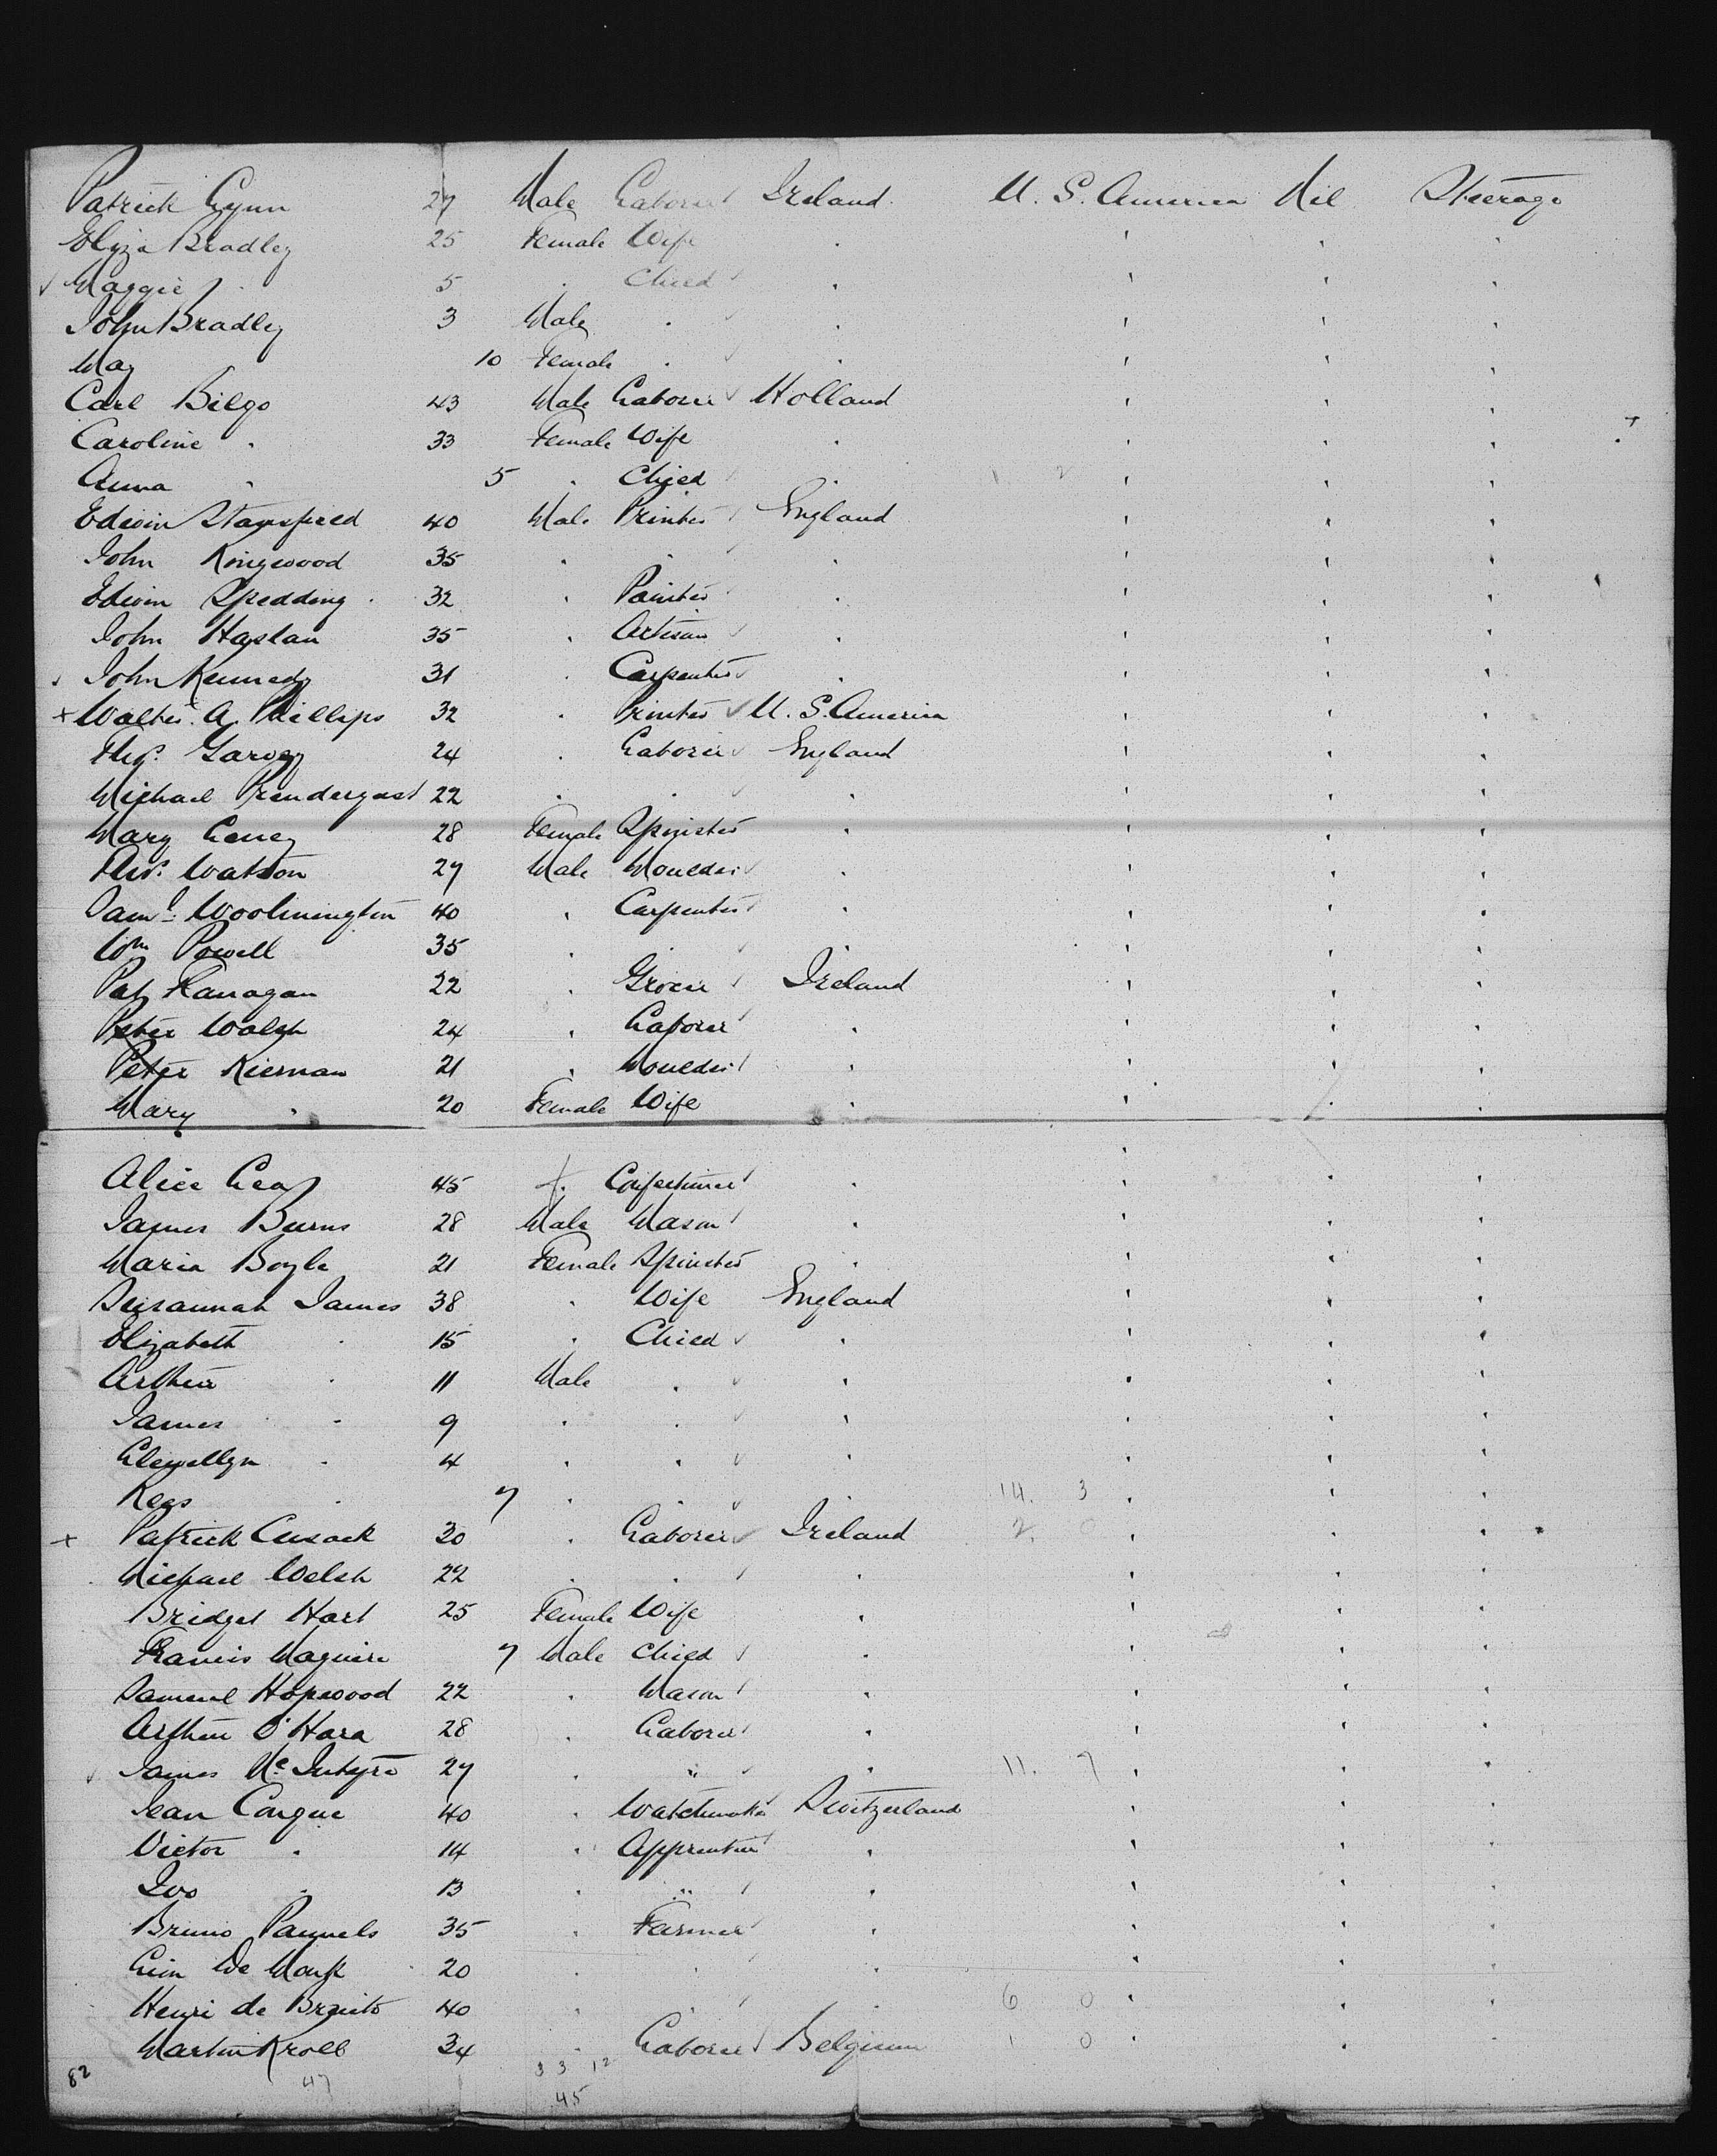 Patrick Lynn 27 Male Laborer Ireland U. S. America Nil Steerage
Eliza Bradley 25 Female Wife
Maggie 5 Child
John Bradley 3 Male
May 10 Female
Carl Bilgo 43 Male Laborer Holland
Caroline 33 Female Wife
Anna 5 Child
Edwin Stansfield 40 Male Printer England
John Kingwood 35
Edwin Spedding 32 Painter
John Haslan 35 Artisan
John Kennedy 31 Carpenter
Walter A Phillips 32 Printer U. S. America
Thos. Garvey 24 Laborer England
Michael Prendergast 22
Mary 28 Female Spinster
Thos. Watson 27 Male Moulder
Saml. Woolmington 40 Carpenter
Wm Powell 35
Pat Flanagan 22 Grocer Ireland
Peter Walsh 24 Laborer
Peter Kiernan 21 Moulder
Mary 20 Female Wife
Alice Leap 45 Confectioner
James Burns 28 Male Mason
Maria Boyle 21 Female Spinster
Susannah James 38 Wife England
Elizabeth 15 Child
Arthur 11 Male
James 9
Llewellyn 4
Rees 7 14. 3
Patrick Cusack 20 Laborer Ireland 2. 0
Michael Welsh 22
Bridget Hart 25 Female Wife
Francis Maguire 7 Male Child
Samuel Hopwood 22 Mason
Arthur O'Hara 28 Laborer
James McIntyre 27 " 11. 7
Jean Conque 40 Watchmaker Switzerland
Victor 14 Apprentice
Ivo 13 "
Bruno Pauwels 35 Farmer
De 20
Henri de 40 6 0
Martin Kroll 34 Laborer Belgium 1 0
82 47 3 3 12
45